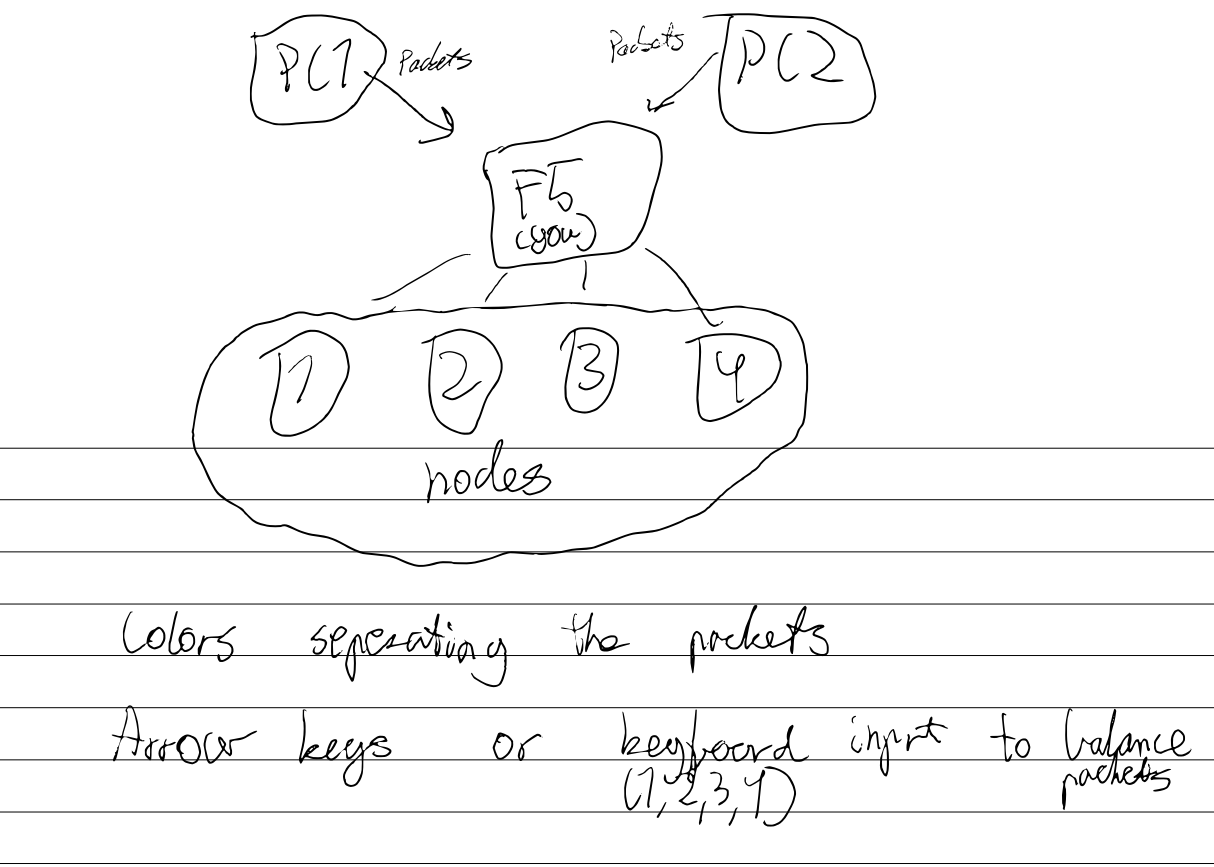 PC1 Packets Packets PC2
F5
(you)
1 2 3 4
nodes
Colors seperating the packets
Arrow keys or keyboard input to balance
(1,2,3,4) packets